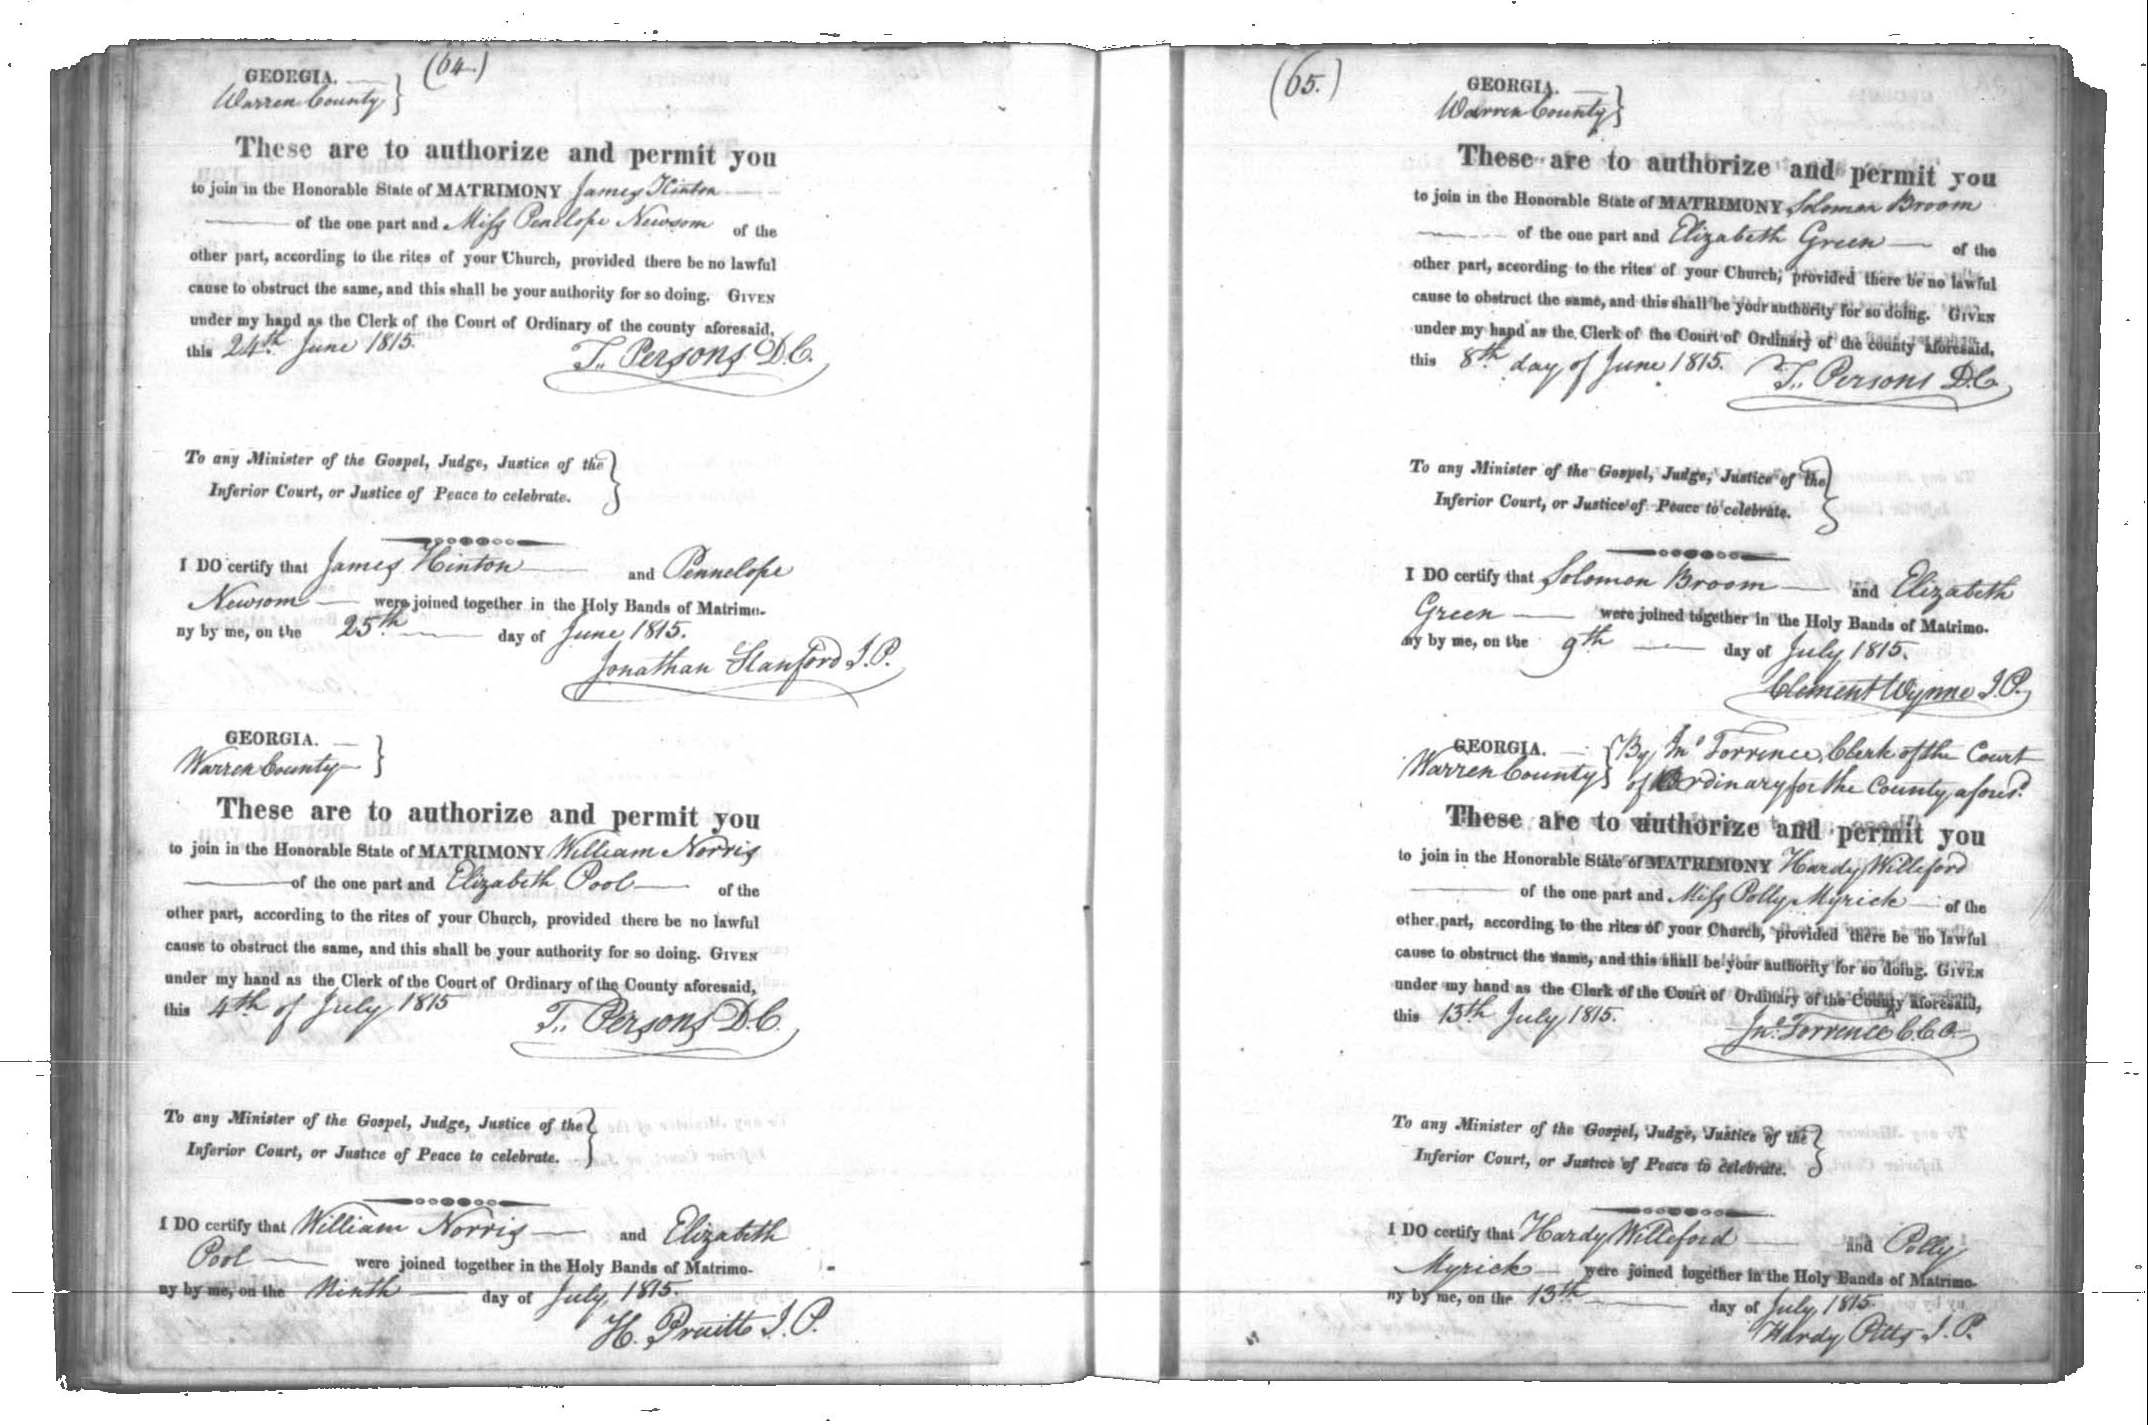 (64.)
GEORGIA.
Warren County }
These are to authorize and permit you
to join in the Honorable State of MATRIMONY James Hinton
of the one part and Miss Penelope Newsom of the
other part, according to the rites of your Church, provided there be no lawful
cause to obstruct the same, and this shall be your authority for so doing. GIVEN
under my hand as the Clerk of the Court of Ordinary of the county aforesaid,
this 24th June 1815.
T. Persons D.C.
To any Minister of the Gospel, Judge, Justice of the }
Inferior Court, or Justice of Peace to celebrate.
I DO certify that James Hinton and Pennelope
Newsom were joined together in the Holy Bands of Matrimo-
ny by me, on the 25th day of June 1815.
Jonathan Stanford J.P.
GEORGIA.
Warren County }
These are to authorize and permit you
to join in the Honorable State of MATRIMONY William Norris
of the one part and Elizabeth Pool of the
other part, according to the rites of your Church, provided there be no lawful
cause to obstruct the same, and this shall be your authority for so doing. GIVEN
under my hand as the Clerk of the Court of Ordinary of the County aforesaid,
this 4th of July 1815
T. Persons D.C.
To any Minister of the Gospel, Judge, Justice of the }
Inferior Court, or Justice of Peace to celebrate.
I DO certify that William Norris and Elizabeth
Pool were joined together in the Holy Bands of Matrimo-
ny by me, on the Ninth day of July 1815.
H. Pruitt J.P.
(65.)
GEORGIA.
Warren County }
These are to authorize and permit you
to join in the Honorable State of MATRIMONY Solomon Broom
of the one part and Elizabeth Green of the
other part, according to the rites of your Church, provided there be no lawful
cause to obstruct the same, and this shall be your authority for so doing. GIVEN
under my hand as the Clerk of the Court of Ordinary of the county aforesaid,
this 8th day of June 1815.
T. Persons D.C.
To any Minister of the Gospel, Judge, Justice of the }
Inferior Court, or Justice of Peace to celebrate.
I DO certify that Solomon Broom and Elizabeth
Green were joined together in the Holy Bands of Matrimo-
ny by me, on the 9th day of July 1815.
Clement Wynne J.P.
GEORGIA. { By Jno Torrence, Clerk of the Court
Warren County } of Ordinary for the County afores.d
These are to authorize and permit you
to join in the Honorable State of MATRIMONY Hardy Willeford
of the one part and Miss Polly Myrick of the
other part, according to the rites of your Church, provided there be no lawful
cause to obstruct the same, and this shall be your authority for so doing. GIVEN
under my hand as the Clerk of the Court of Ordinary of the County aforesaid,
this 13th July 1815.
Jno. Torrence C.C.O.
To any Minister of the Gospel, Judge, Justice of the }
Inferior Court, or Justice of Peace to celebrate.
I DO certify that Hardy Willeford and Polly
Myrick were joined together in the Holy Bands of Matrimo-
ny by me, on the 13th day of July 1815.
Hardy Pitts J.P.